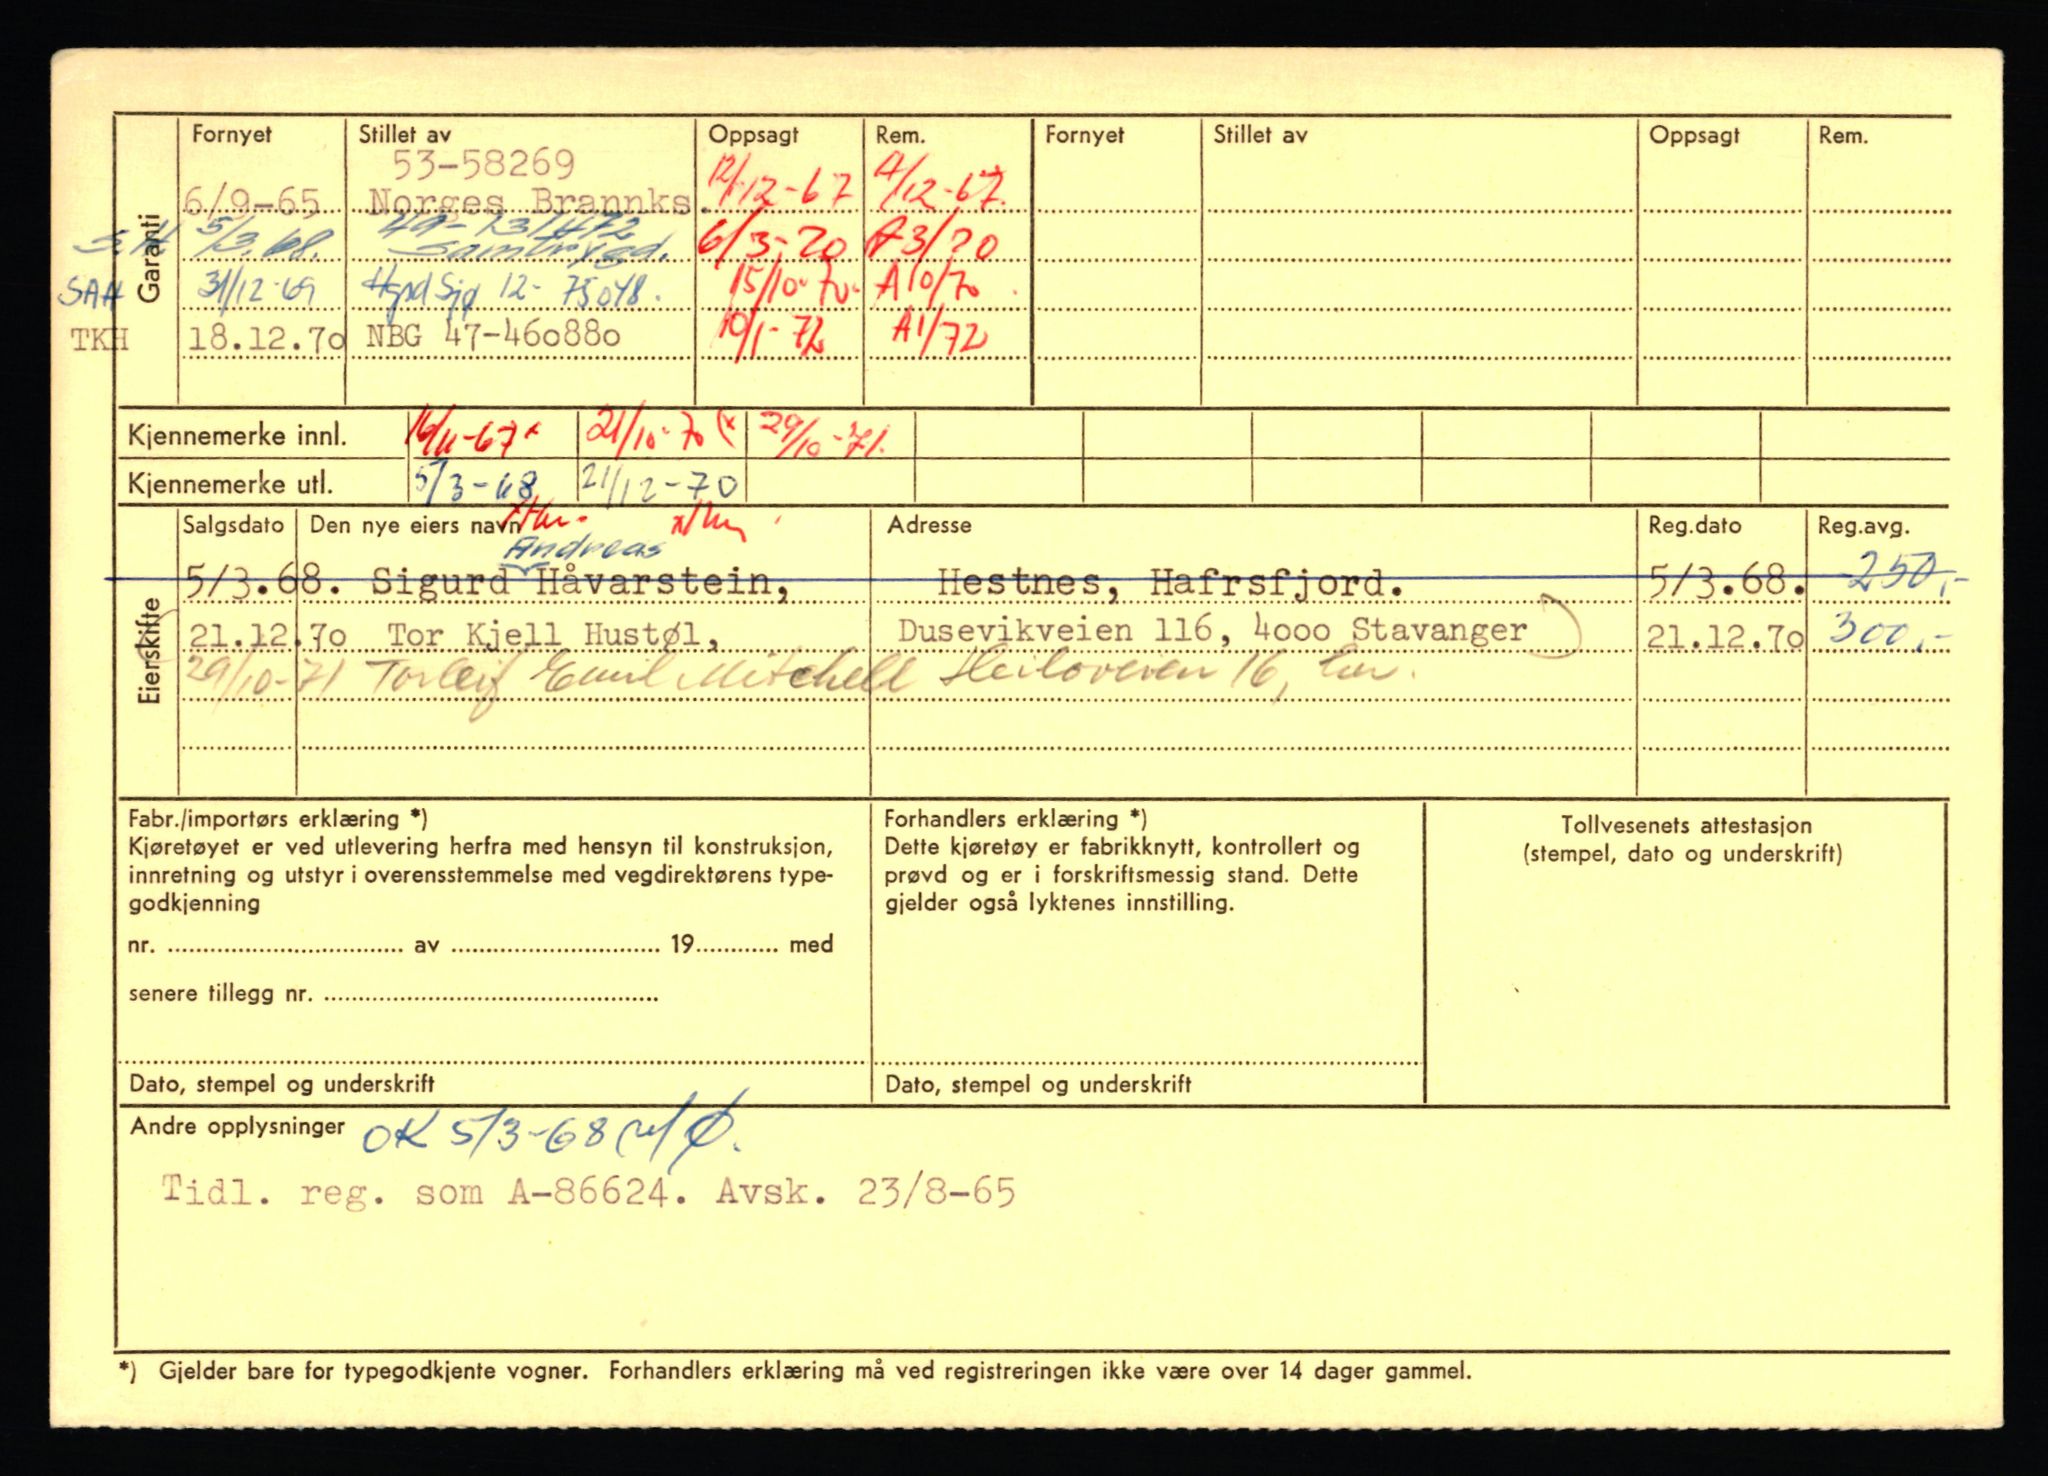 Garanti
Fornyet Stillet av Oppsagt Rem. Fornyet Stillet av Oppsagt Rem.
53-58269
6/9-65 Norges Brannks. 12/12-67 4/12-67.
5/3.68. Samtrygd. 6/3-70 A3/70
SAH 31/12-69 12-75048. 15/10-70. A10/70
TKH 18.12.70 NBG 47-460880 10/1-72 A1/72
Kjennemerke innl. 16/11-67x 21/10-70 (x 29/10-71.
Kjennemerke utl. 5/3-68 21/12-70
Eierskifte
Salgsdato Den nye eiers navn Adresse Reg.dato Reg.avg.
Andreas
5/3.68. Sigurd Håvarstein, Hestnes, Hafrsfjord. 5/3.68. 250,-
21.12.70 Tor Kjell Hustøl, Dusevikveien 116, 4000 Stavanger 21.12.70 300,-
29/10-71 Torleif Emil Mitchell Heiloveien 16, her.
Fabr./importørs erklæring *)
Kjøretøyet er ved utlevering herfra med hensyn til konstruksjon,
innretning og utstyr i overensstemmelse med vegdirektørens type-
godkjenning
nr. av 19 med
senere tillegg nr.
Dato, stempel og underskrift
Forhandlers erklæring *)
Dette kjøretøy er fabrikknytt, kontrollert og
prøvd og er i forskriftsmessig stand. Dette
gjelder også lyktenes innstilling.
Dato, stempel og underskrift
Tollvesenets attestasjon
(stempel, dato og underskrift)
Andre opplysninger OK 5/3-68
Tidl. reg. som A-86624. Avsk. 23/8-65
*) Gjelder bare for typegodkjente vogner. Forhandlers erklæring må ved registreringen ikke være over 14 dager gammel.